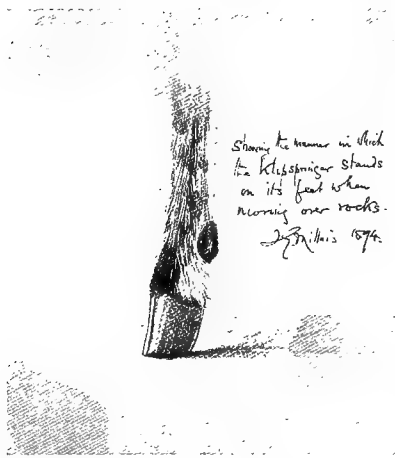 Showing the manner in which
the Klipspringer stands
on its feet when
moving over rocks.
J G Millais 1894.